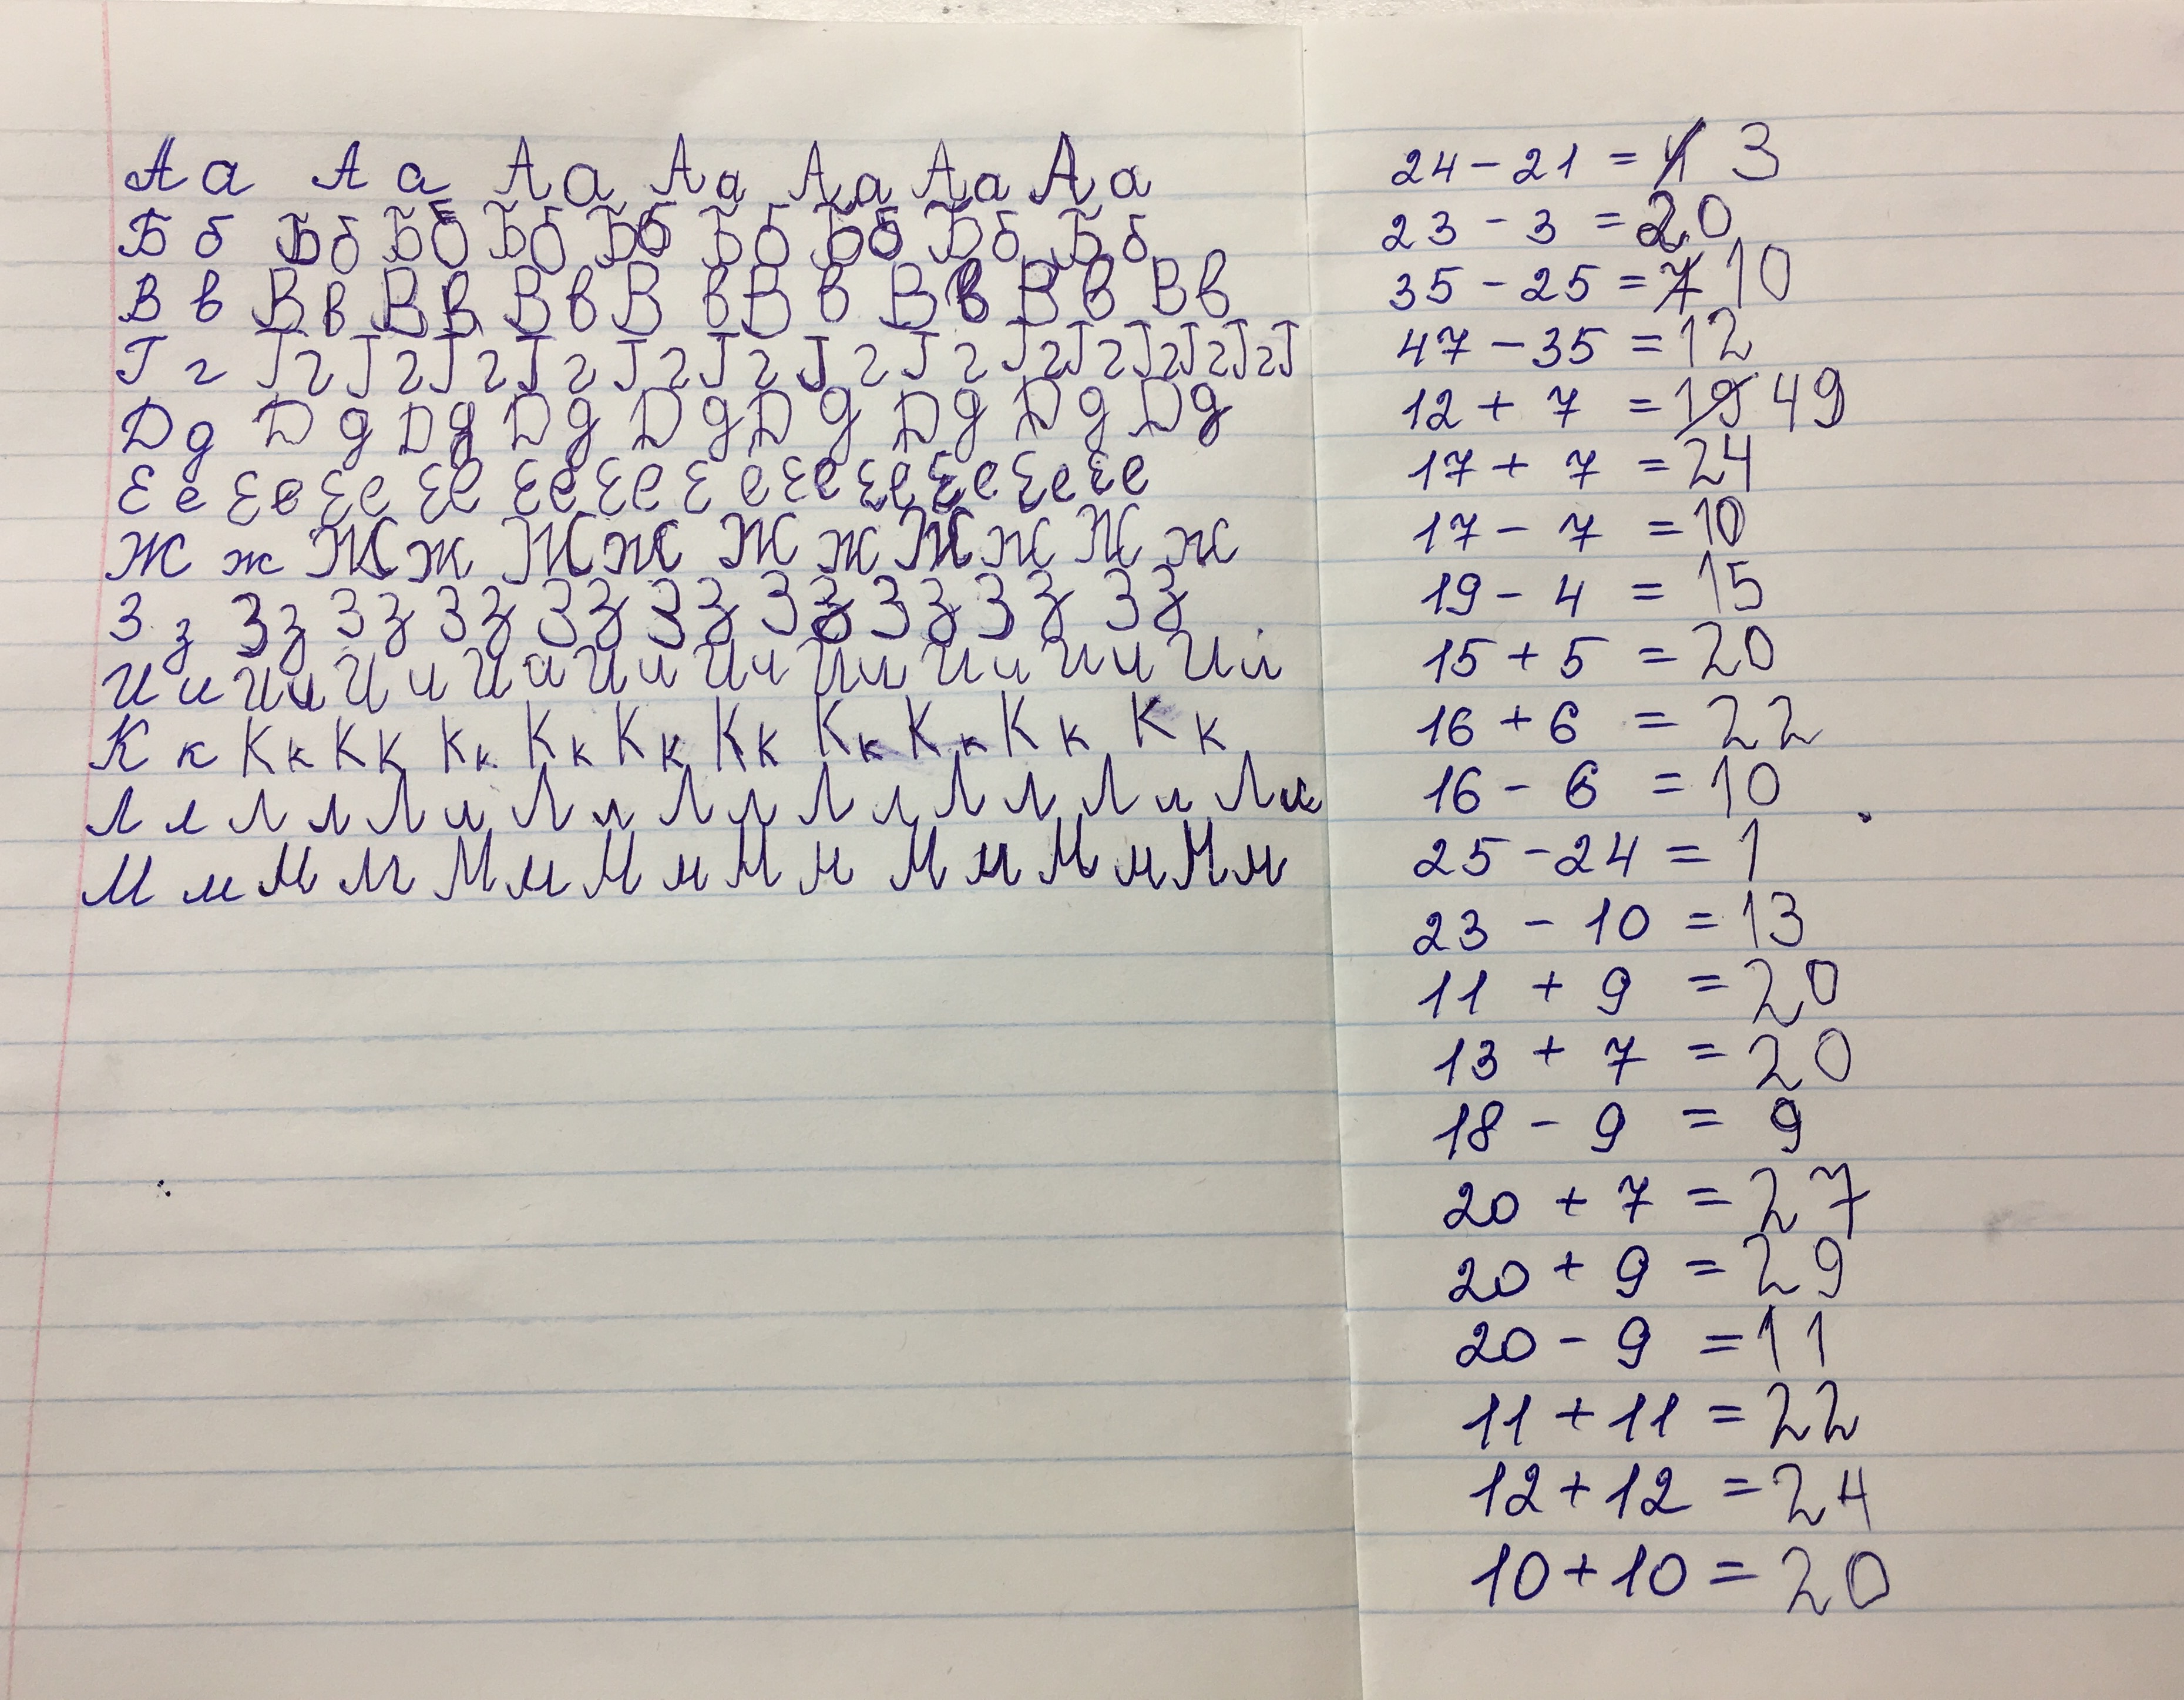 Аа Аа Аа Аа Аа Аа Аа
Бб Бб Бб Бб Бб Бб Бб Бб Бб
Вв Вв Вв Вв Вв Вв Вв Вв Вв
Гг Гг Гг Гг Гг Гг Гг Гг Гг Гг Гг Гг Гг Г
Дд Дд Дд Дд Дд Дд Дд Дд Дд
Ее Ее Ее Ее Ее Ее Ее Ее Ее Ее Ее Ее
Жж Жж Жж Жж Жж Жж
Зз Зз Зз Зз Зз Зз Зз Зз Зз Зз
Ии Ии Ии Ии Ии Ии Ии Ии Ии Ии
Кк Кк Кк Кк Кк Кк Кк Кк Кк Кк Кк
Лл Лл Лл Лл Лл Лл Лл Лл Лл
Мм Мм Мм Мм Мм Мм Мм Мм
24 - 21 = 3
23 - 3 = 20
35 - 25 = 7 10
47 - 35 = 12
12 + 7 = 19 49
17 + 7 = 24
17 - 7 = 10
19 - 4 = 15
15 + 5 = 20
16 + 6 = 22
16 - 6 = 10
25 - 24 = 1
23 - 10 = 13
11 + 9 = 20
13 + 7 = 20
18 - 9 = 9
20 + 7 = 27
20 + 9 = 29
20 - 9 = 11
11 + 11 = 22
12 + 12 = 24
10 + 10 = 20